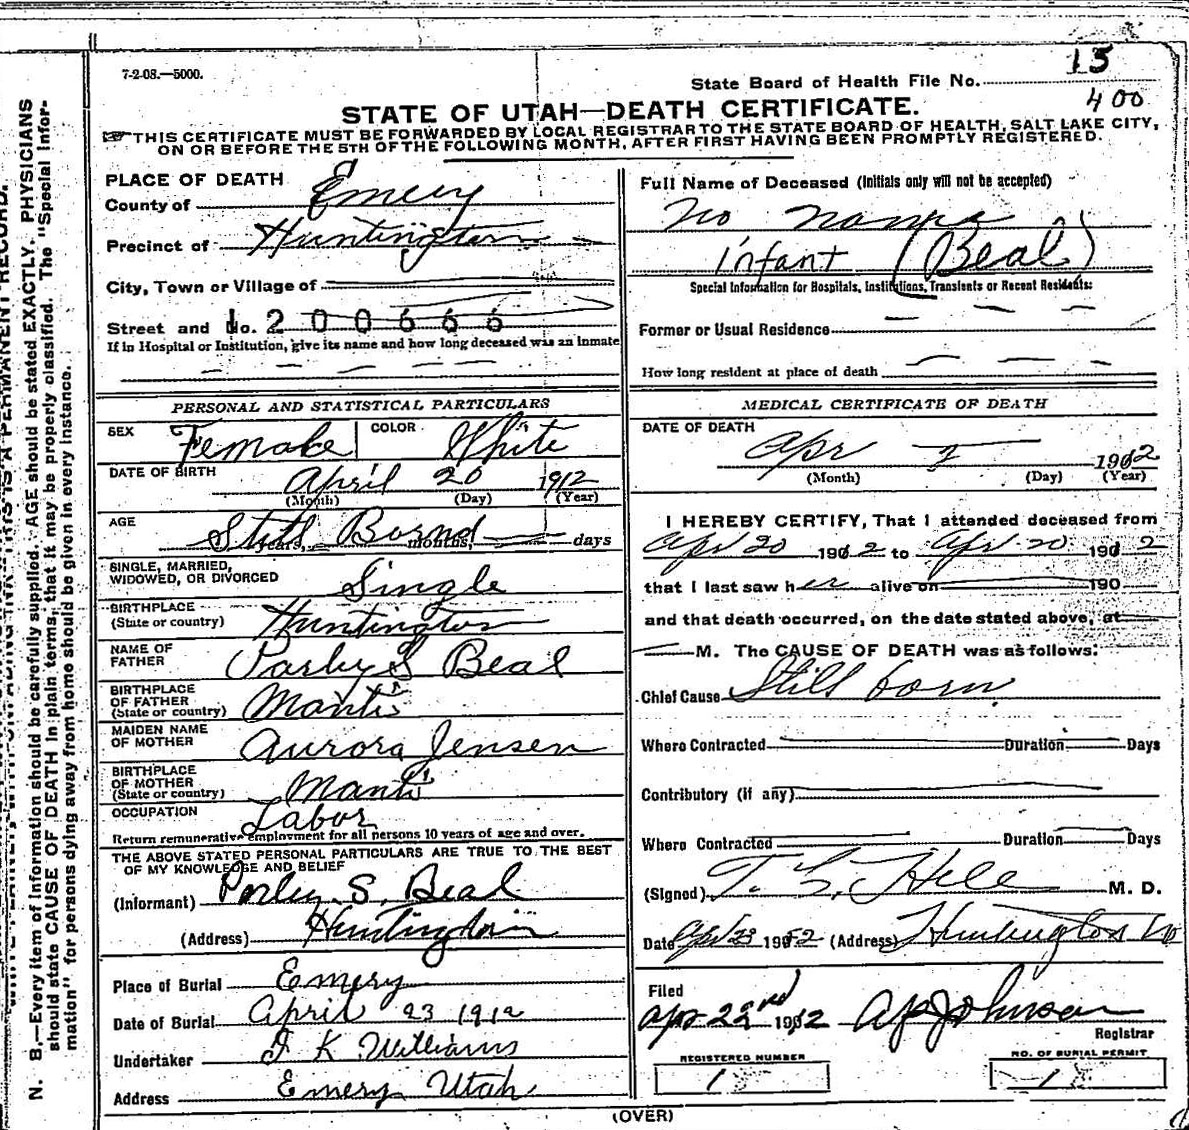 7-2-08.—5000.
State Board of Health File No. 15
400
STATE OF UTAH—DEATH CERTIFICATE.
THIS CERTIFICATE MUST BE FORWARDED BY LOCAL REGISTRAR TO THE STATE BOARD OF HEALTH, SALT LAKE CITY,
ON OR BEFORE THE 5TH OF THE FOLLOWING MONTH, AFTER FIRST HAVING BEEN PROMPTLY REGISTERED.
PLACE OF DEATH
County of Emery
Precinct of Huntington
City, Town or Village of
Street and No. 1200666
If in Hospital or Institution, give its name and how long deceased was an inmate
PERSONAL AND STATISTICAL PARTICULARS
SEX Female COLOR White
DATE OF BIRTH April 20 1912
(Month) (Day) (Year)
AGE Still Bornd
years, months, days
SINGLE, MARRIED,
WIDOWED, OR DIVORCED Single
BIRTHPLACE
(State or country) Huntington
NAME OF
FATHER Parley S Beal
BIRTHPLACE
OF FATHER
(State or country) Manti
MAIDEN NAME
OF MOTHER Aurora Jensen
BIRTHPLACE
OF MOTHER
(State or country) Manti
OCCUPATION Labor
Return remunerative employment for all persons 10 years of age and over.
THE ABOVE STATED PERSONAL PARTICULARS ARE TRUE TO THE BEST
OF MY KNOWLEDGE AND BELIEF
(Informant) Parley. S. Beal
(Address) Huntington
Place of Burial Emery
Date of Burial April 23 1912
Undertaker J K Williams
Address Emery Utah
Full Name of Deceased (Initials only will not be accepted)
No name
infant (Beal)
Special Information for Hospitals, Institutions, Transients or Recent Residents:
Former or Usual Residence
How long resident at place of death
MEDICAL CERTIFICATE OF DEATH
DATE OF DEATH
Apr 1912
(Month) (Day) (Year)
I HEREBY CERTIFY, That I attended deceased from
Apr 20 1912 to Apr 20 1912
that I last saw her alive on 190
and that death occurred, on the date stated above, at
M. The CAUSE OF DEATH was as follows:
Chief Cause Still born
Where Contracted Duration Days
Contributory (if any)
Where Contracted Duration Days
(Signed) M. D.
Date Apr 23 1912 (Address) Huntington
Filed
Apr 23rd 1912
Registrar
REGISTERED NUMBER
1
NO. OF BURIAL PERMIT
1
(OVER)
N. B.—Every item of information should be carefully supplied. AGE should be stated EXACTLY. PHYSICIANS
should state CAUSE OF DEATH in plain terms, that it may be properly classified. The "Special Infor-
mation" for persons dying away from home should be given in every instance.